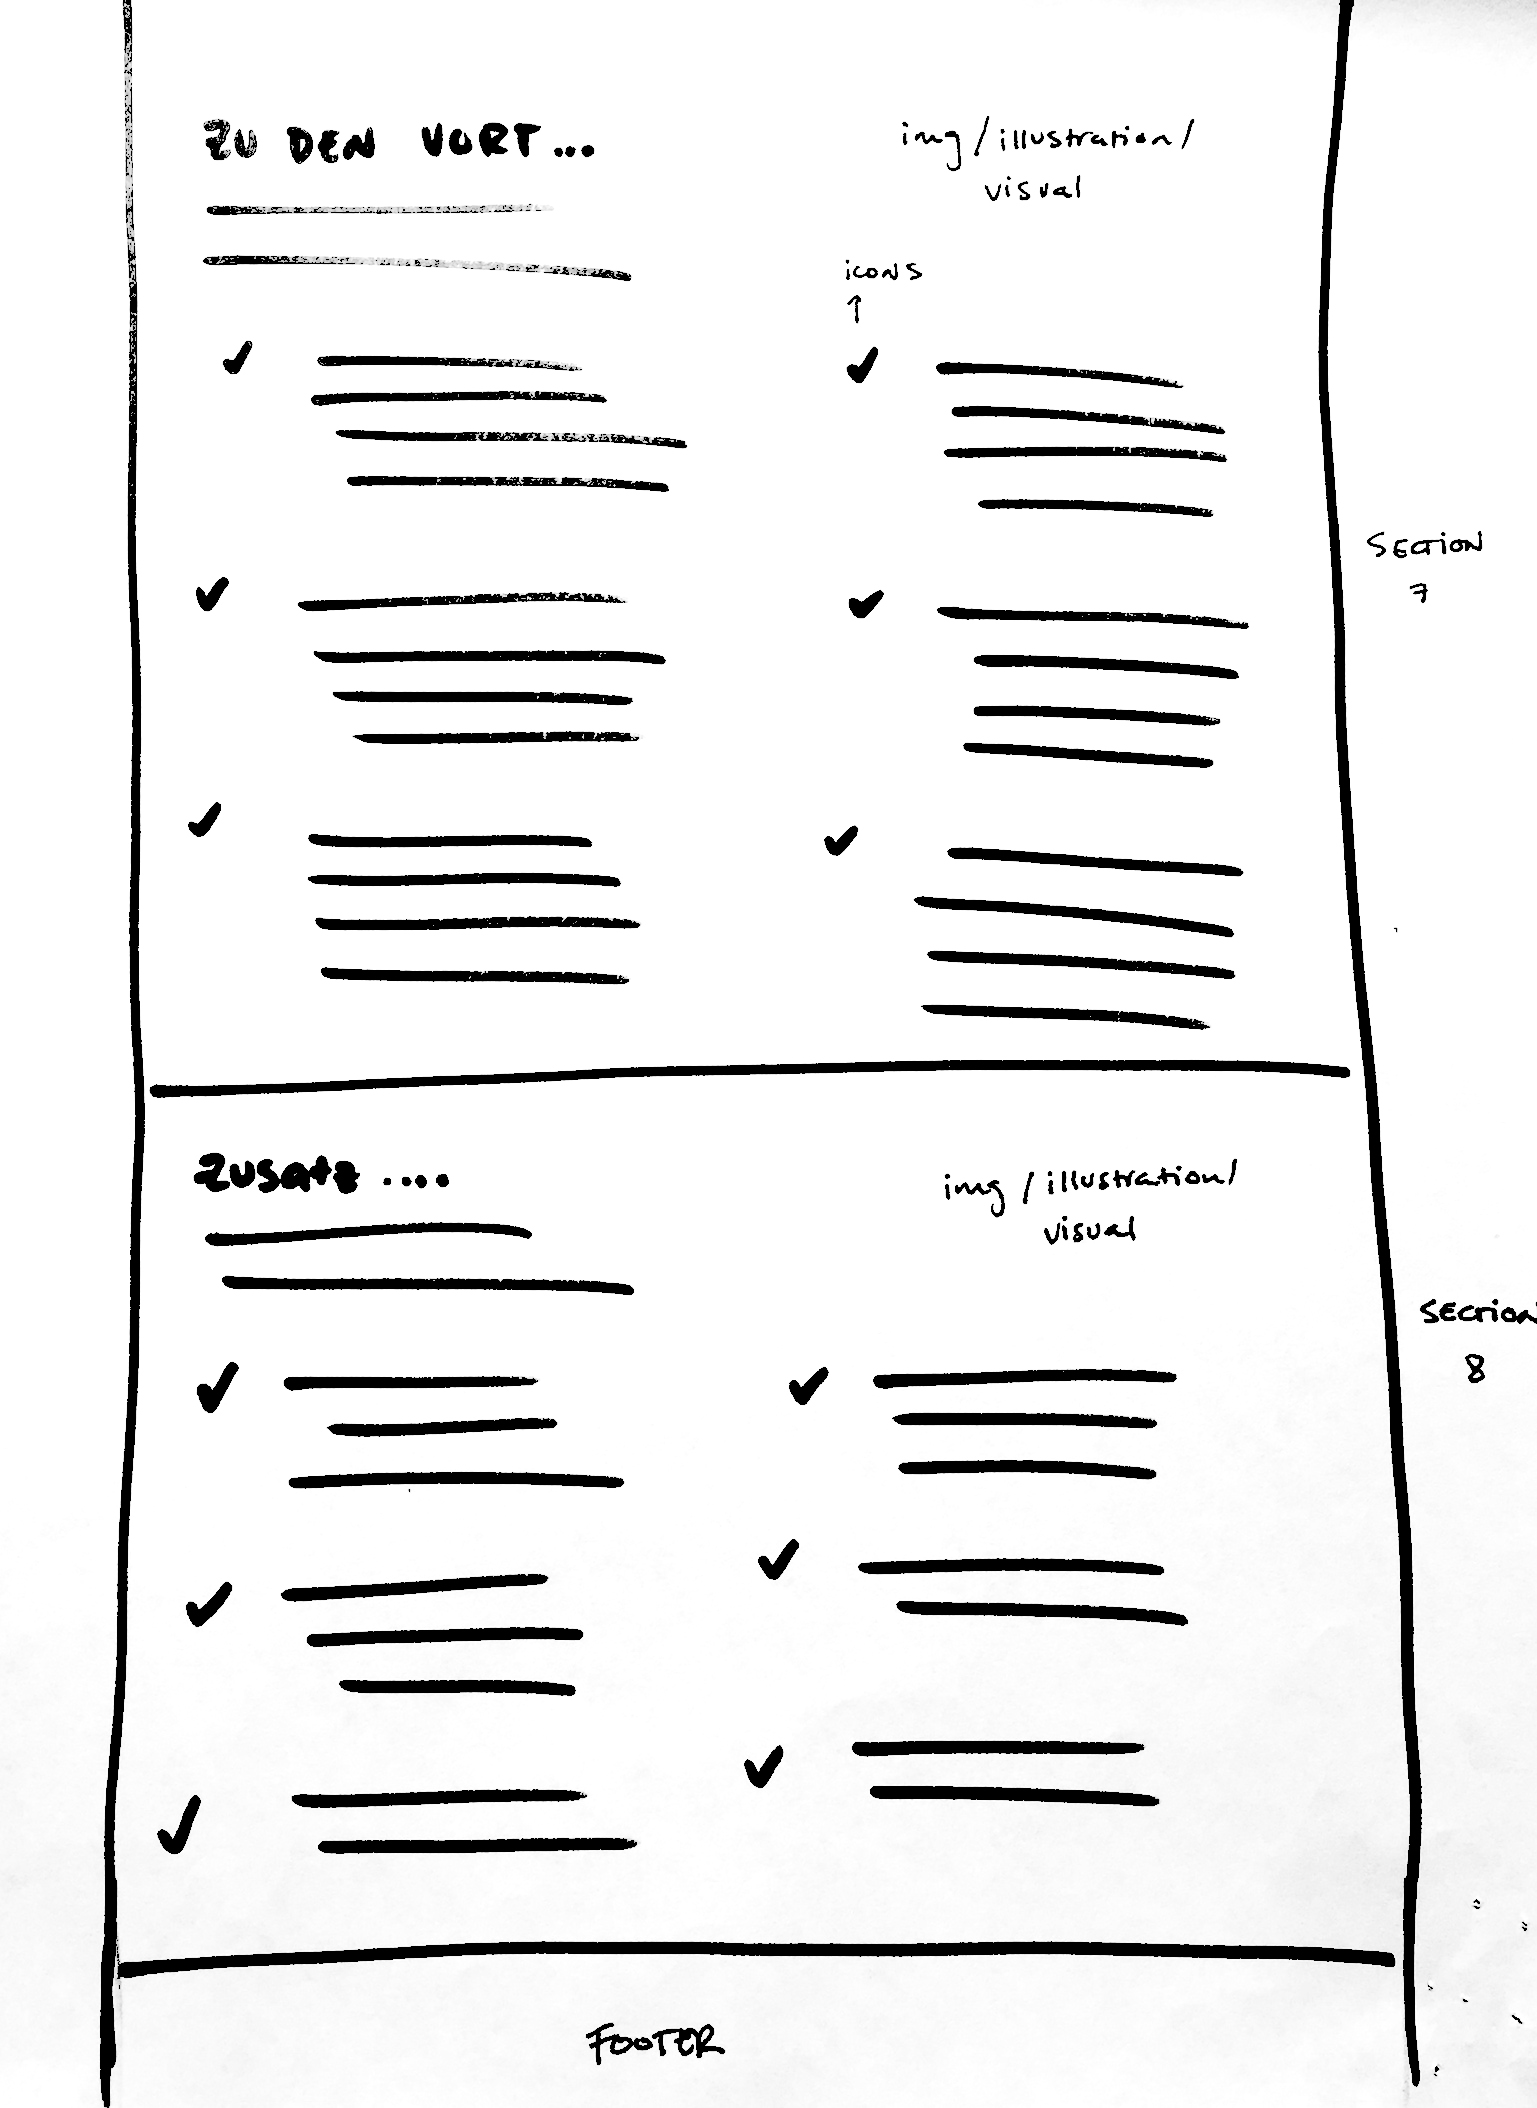 ZU DEN VORT...
img/illustration/
visual
icons
SECTION
7
Zusatz ....
img/illustration/
visual
SECTION
8
FOOTER